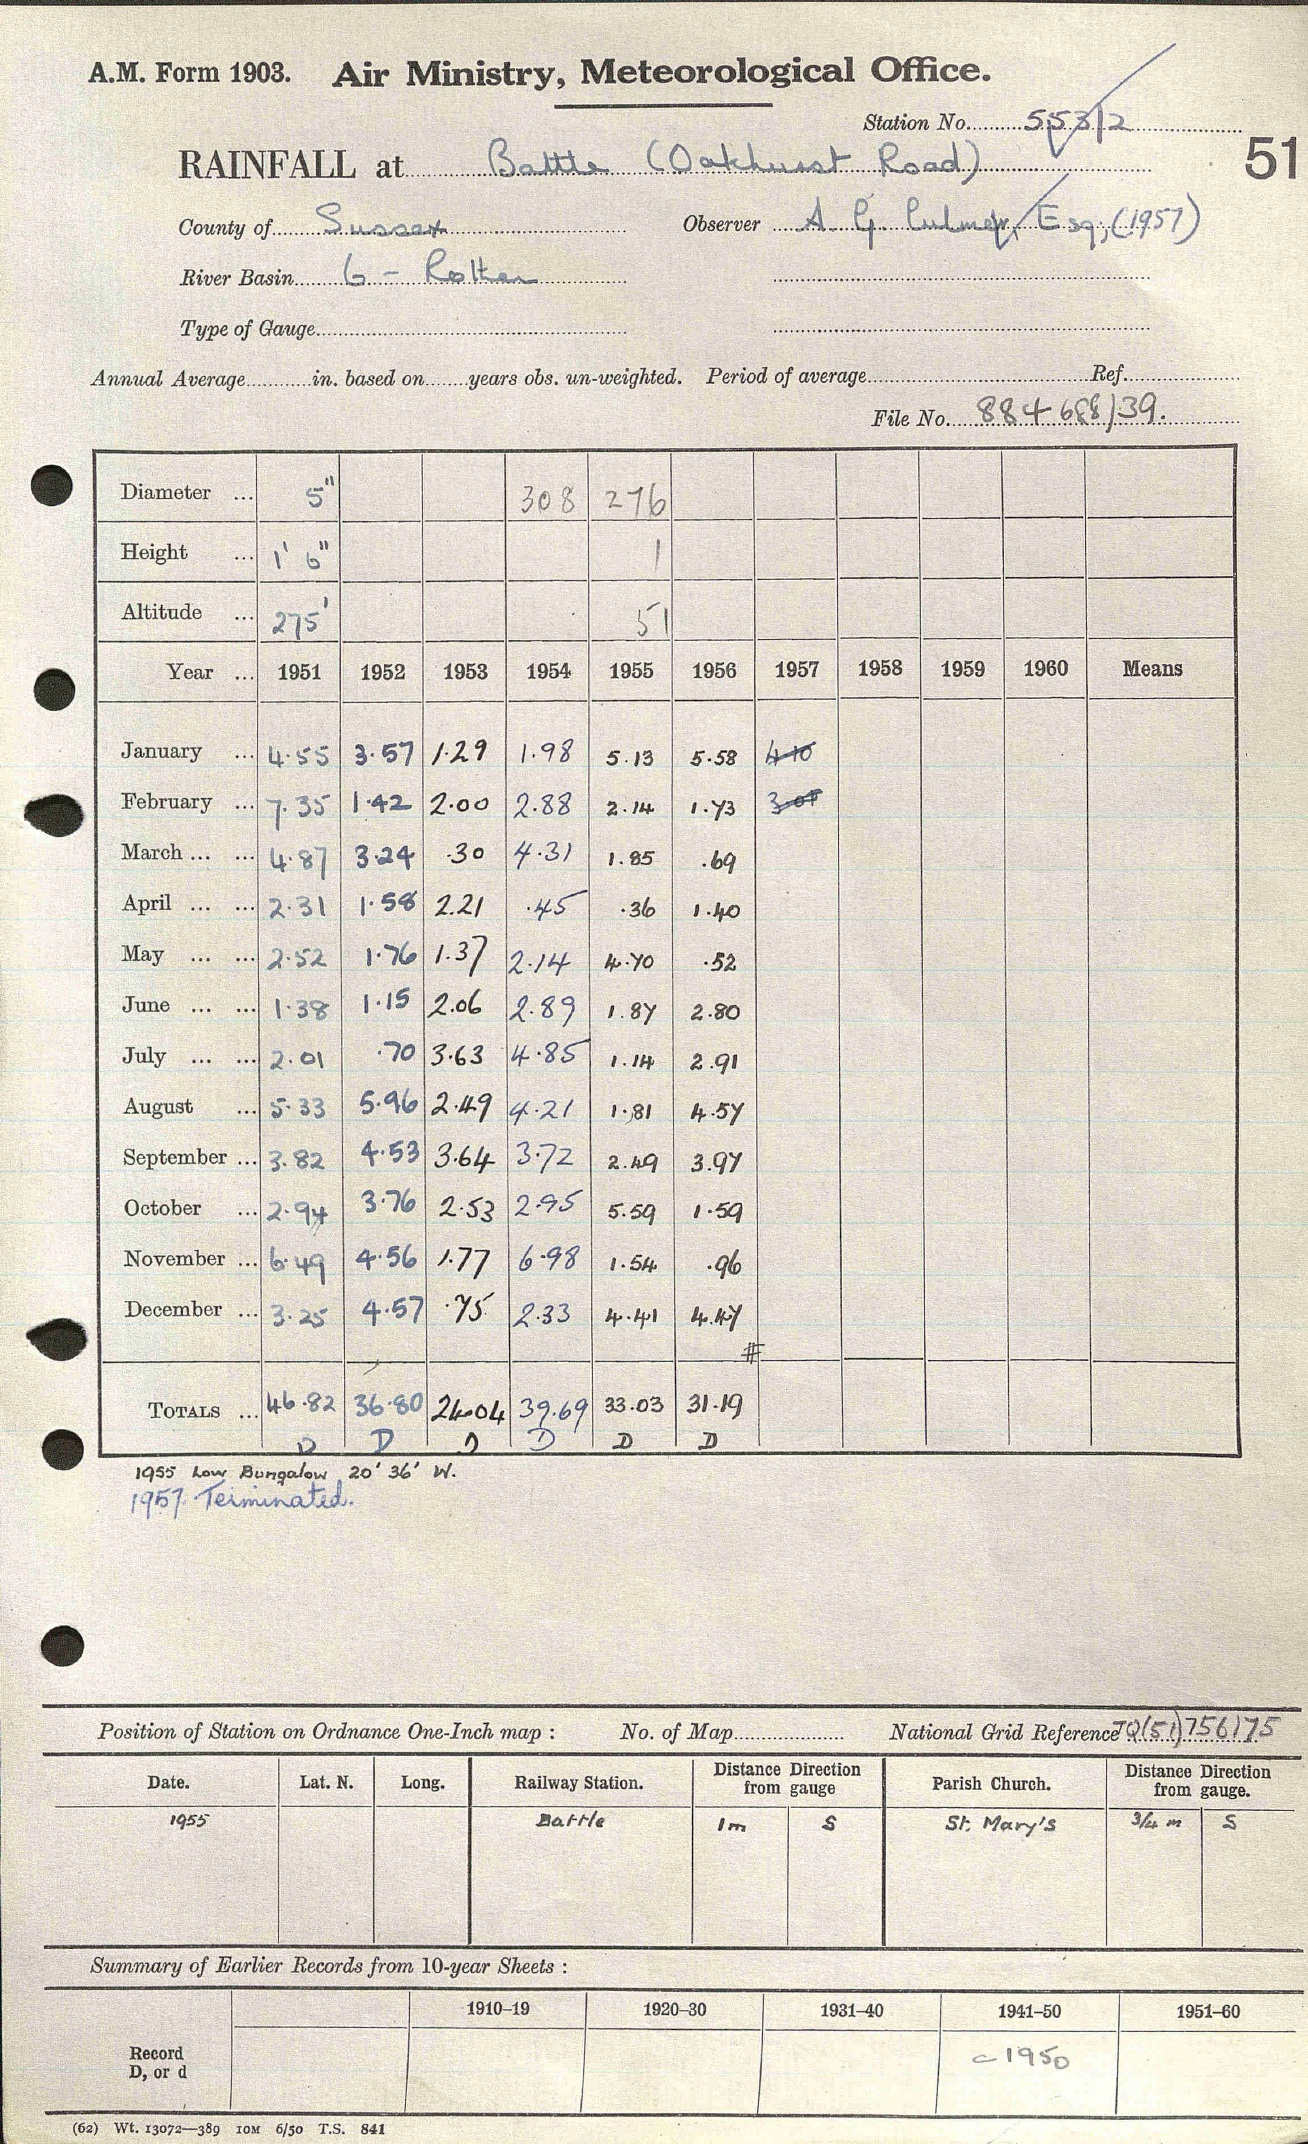 A.M. Form 1903. Air Ministry, Meteorological Office.
Station No. 553/2
51
RAINFALL at Battle (Oakhurst Road)
County of Sussex Observer A. G. Esq; (1957)
River Basin 6 - Rother
Type of Gauge
Annual Average in. based on years obs. un-weighted. Period of average Ref.
File No. 884688/39.
Diameter ... 5" 308 276
Height ... 1' 6" 1
Altitude ... 275' 51
Year ... 1951 1952 1953 1954 1955 1956 1957 1958 1959 1960 Means
January ... 4.55 3.57 1.29 1.98 5.13 5.58 4.10
February ... 7.35 1.42 2.00 2.88 2.14 1.73 3.01
March ... ... 4.87 3.24 .30 4.31 1.85 .69
April ... ... 2.31 1.58 2.21 .45 .36 1.40
May ... ... 2.52 1.76 1.37 2.14 4.70 .52
June ... ... 1.38 1.15 2.06 2.89 1.87 2.80
July ... ... 2.01 .70 3.63 4.85 1.14 2.91
August ... 5.33 5.96 2.49 4.21 1.81 4.57
September ... 3.82 4.53 3.64 3.72 2.49 3.97
October ... 2.94 3.76 2.53 2.95 5.59 1.59
November ... 6.49 4.56 1.77 6.98 1.54 .96
December ... 3.25 4.57 .75 2.33 4.41 4.47
#
TOTALS ... 46.82 36.80 24.04 39.69 33.03 31.19
D D D D D D
1955 Low Bungalow 20' 36' W.
1957. Terminated.
Position of Station on Ordnance One-Inch map : No. of Map National Grid Reference TQ(51)756175
Date. Lat. N. Long. Railway Station. Distance Direction from gauge Parish Church. Distance Direction from gauge.
1955 Battle 1m S St. Mary's 3/4 m S
Summary of Earlier Records from 10-year Sheets :
1910–19 1920–30 1931–40 1941–50 1951–60
Record D, or d c 1950
(62) Wt. 13072—389 10M 6/50 T.S. 841